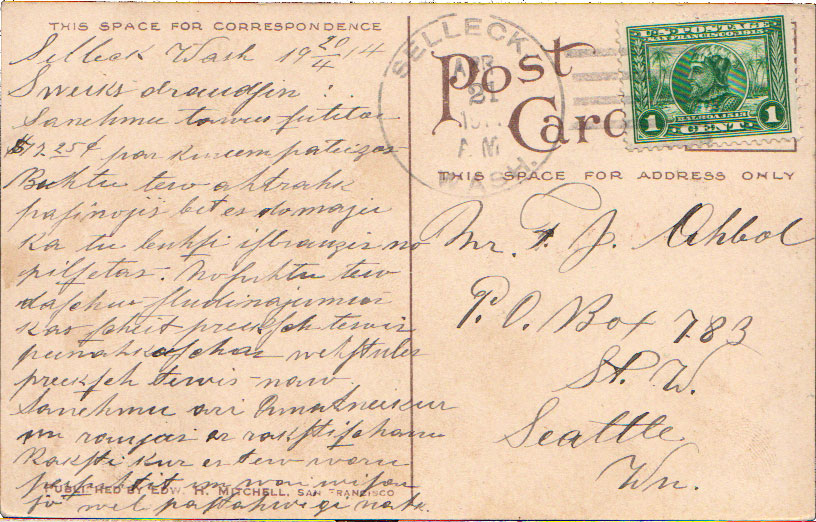 THIS SPACE FOR CORRESPONDENCE
Selleck Wash 19 20/4 14
Sweiks draudsin!
Sanehmu tawu sutitas
$12 25¢ par kureem pateizos
Buhtu tew ahtrahk
pasinojis bet es domaju
ka tu buhsi isbrauzis no
pilsetas. Nosuhtu tew
daschus sludinajumus
kas scheit preeksch tewis
peenahkuschas wehstules
preeksch tewis naw.
Sanehmu ari
un raujas ar rakstischanu
Raksti kur es tew waru
un wai wisas
jo wel pastahwigi
PUBLISHED BY EDW. H. MITCHELL, SAN FRANCISCO
SELLECK, WASH.
APR 21 A M
Post Card
U.S. POSTAGE
SAN FRANCISCO, 1915
BALBOA 1513
1 CENT 1
THIS SPACE FOR ADDRESS ONLY
Mr. F. J. Ahbol
P.O. Box 783
St. W.
Seattle
Wn.